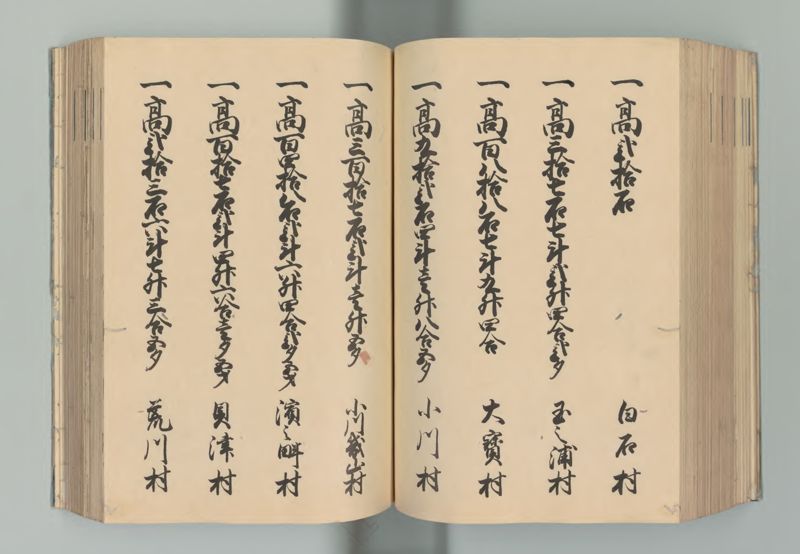 一高弐拾石 白石村
一高三拾七石七斗弐升四合弐夕 玉之浦村
一高百八拾八石七斗九升四合 大寳村
一高九拾弐石四斗壱升八合五夕 小川村
一高三百拾七石弐斗壱升五夕 小川 村
一高百四拾八石弐斗六升四合弐夕五才 濱之畔村
一高百拾七石弐斗四升六合壱夕五才 貝津村
一高弐拾三石六斗七升三合五夕 荒川村